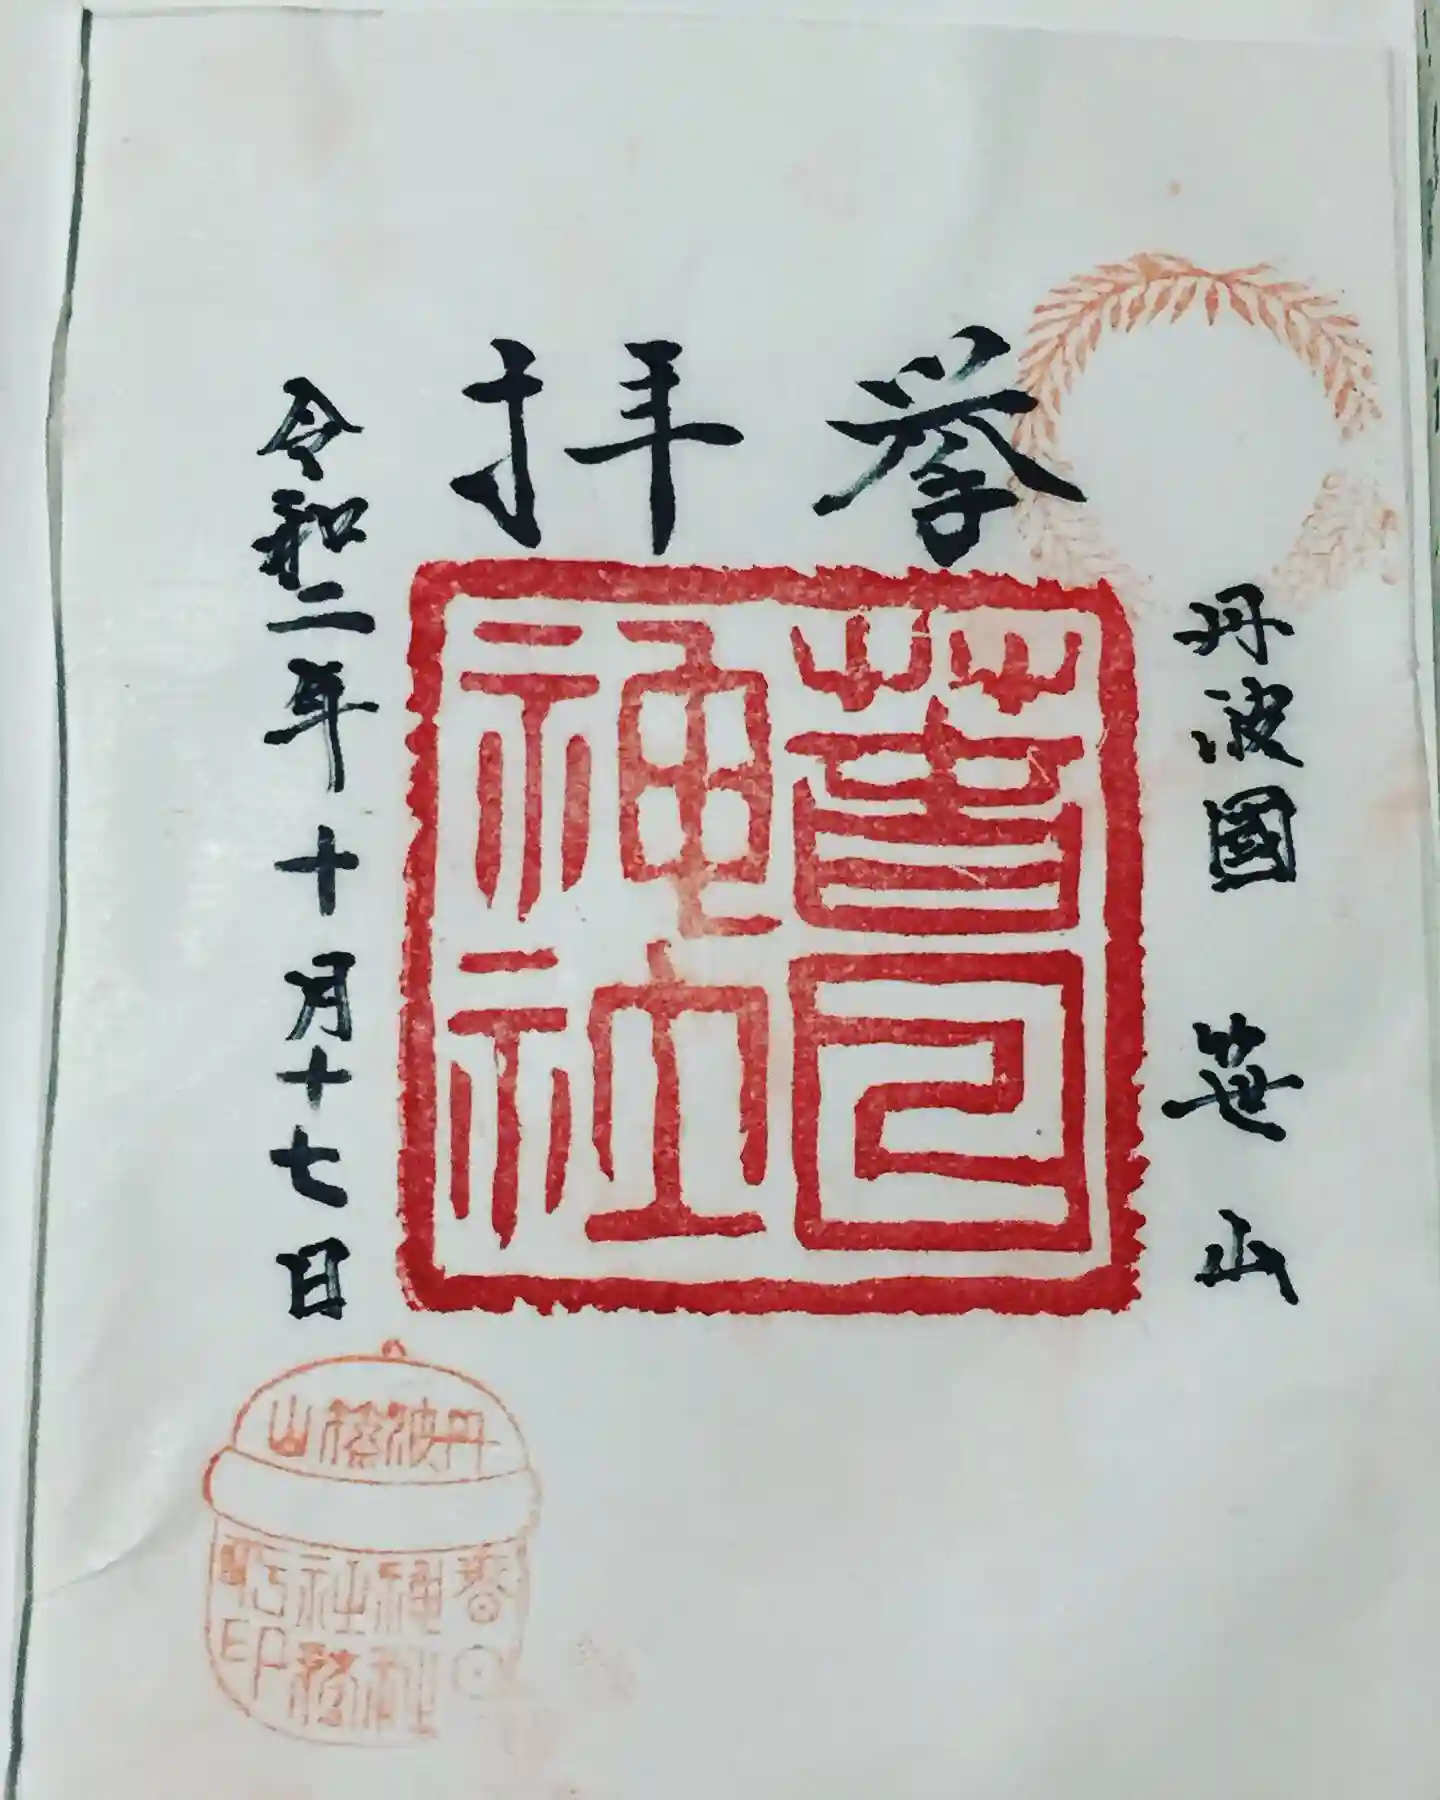 丹波國 笹山
拳拜
春日
神社
令和二年十月十七日
丹波篠山
春日
神社
社務
印